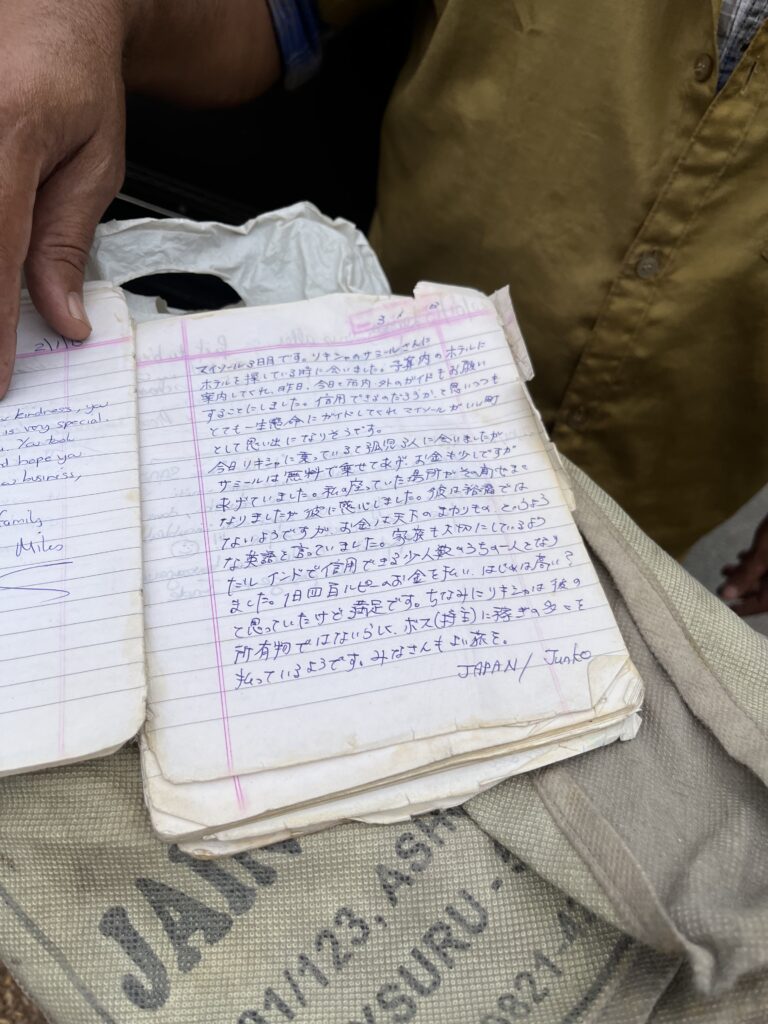 21/10
kindness, you
is very special.
You took
hope you
business,
family
Miles
3 1
マイソール3日目です。リキシャのサミールさんに
ホテルを探している時に会いました。予算内のホテルに
案内してくれ、昨日、今日と市内、外のガイドもお願い
することにしました。信用できるのだろうか、と思いつつも
とても一生懸命にガイドしてくれ マイソールがいい町
として思い出になりそうです。
今日リキシャに乗っていると孤児3人に会いましたが
サミールは無料で乗せてあげ、お金も少しですが
あげていました。私の座っていた場所が
なりましたが彼に感心しました。彼は裕福では
ないようですが、お金は天下のまわりもの というよう
な英語を言っていました。家族も大切にしているよう
だし インドで信用できる少人数のうちの一人となり
ました。1日四百ルピーのお金を払い、はじめは高い?
と思っていたけど満足です。ちなみにリキシャは彼の
所有物ではないらしく、ボス(持主)に稼ぎの多くを
払っているようです。みなさんもよい旅を。
JAPAN / Junko
JAIN
91/123, ASH
YSURU -
0821-4